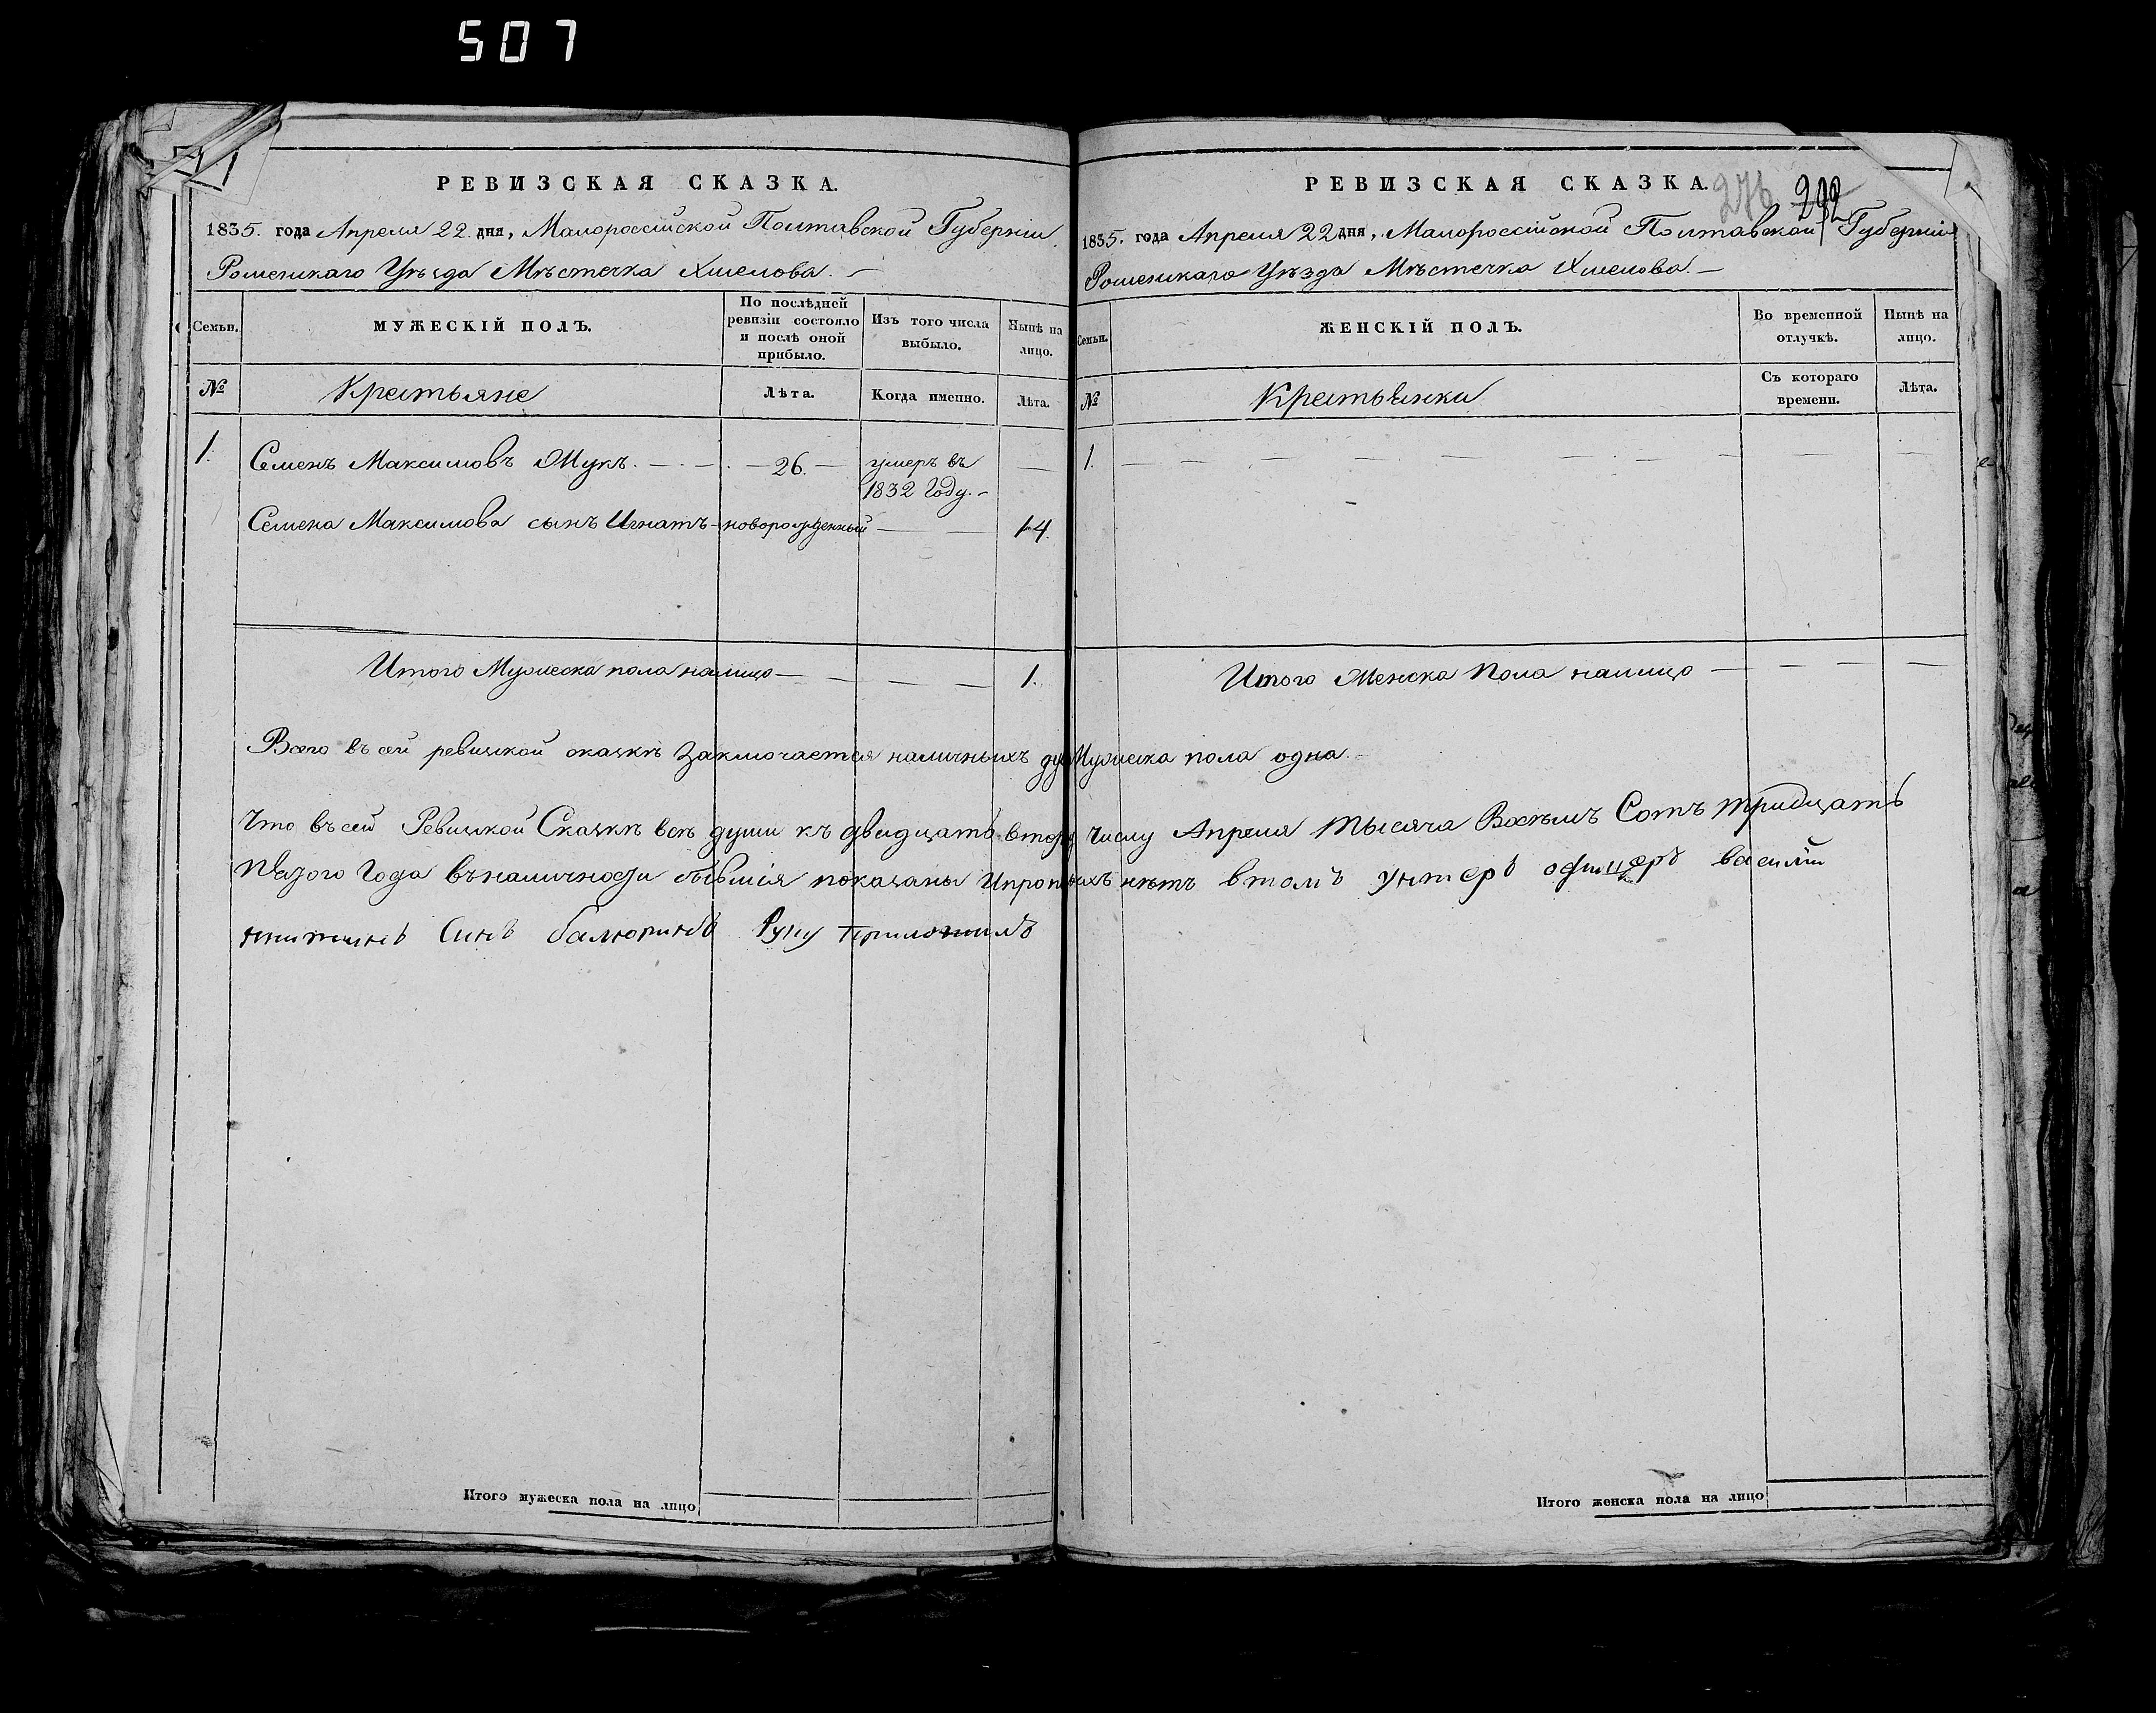 507
РЕВИЗСКАЯ СКАЗКА.
1835. года Апреля 22 дня, Малороссійской Полтавской Губерніи
Роменскаго Уѣзда Мѣстечка Хмелова. —
Семьи.
МУЖЕСКІЙ ПОЛЪ.
По послѣдней ревизіи состояло и послѣ оной прибыло.
Изъ того числа выбыло.
Нынѣ на лицо.
№
Крестьяне
Лѣта.
Когда именно.
Лѣта.
1. Семенъ Максимовъ Жукъ. — 26. — умеръ въ
1832 Году. —
Семена Максимова сынъ Игнатъ — новорожденный — 14.
Итого Мужеска пола налицо — 1.
РЕВИЗСКАЯ СКАЗКА.
276
1835. года Апреля 22 дня, Малороссійской Полтавской Губерніи
Роменскаго Уѣзда Мѣстечка Хмелова. —
Семьи.
ЖЕНСКІЙ ПОЛЪ.
Во временной отлучкѣ.
Нынѣ на лицо.
№
Крестьянки
Съ котораго времени.
Лѣта.
1.
Итого Женска Пола налицо —
Всего въ сей ревизкой сказкѣ Заключается наличныхъ ду Мужеска пола одна.
Что въ сей Ревизкой Сказкѣ всѣ души къ двадцать втору Числу Апреля Тысяча Восѣмъ Сотъ тридцать
пятого Года въ наличности бывшія показаны И прописныхъ нѣтъ втомъ унтеръ офицеръ василій
Синъ Руку приложилъ
Итого мужеска пола на лицо
Итого женска пола на лицо